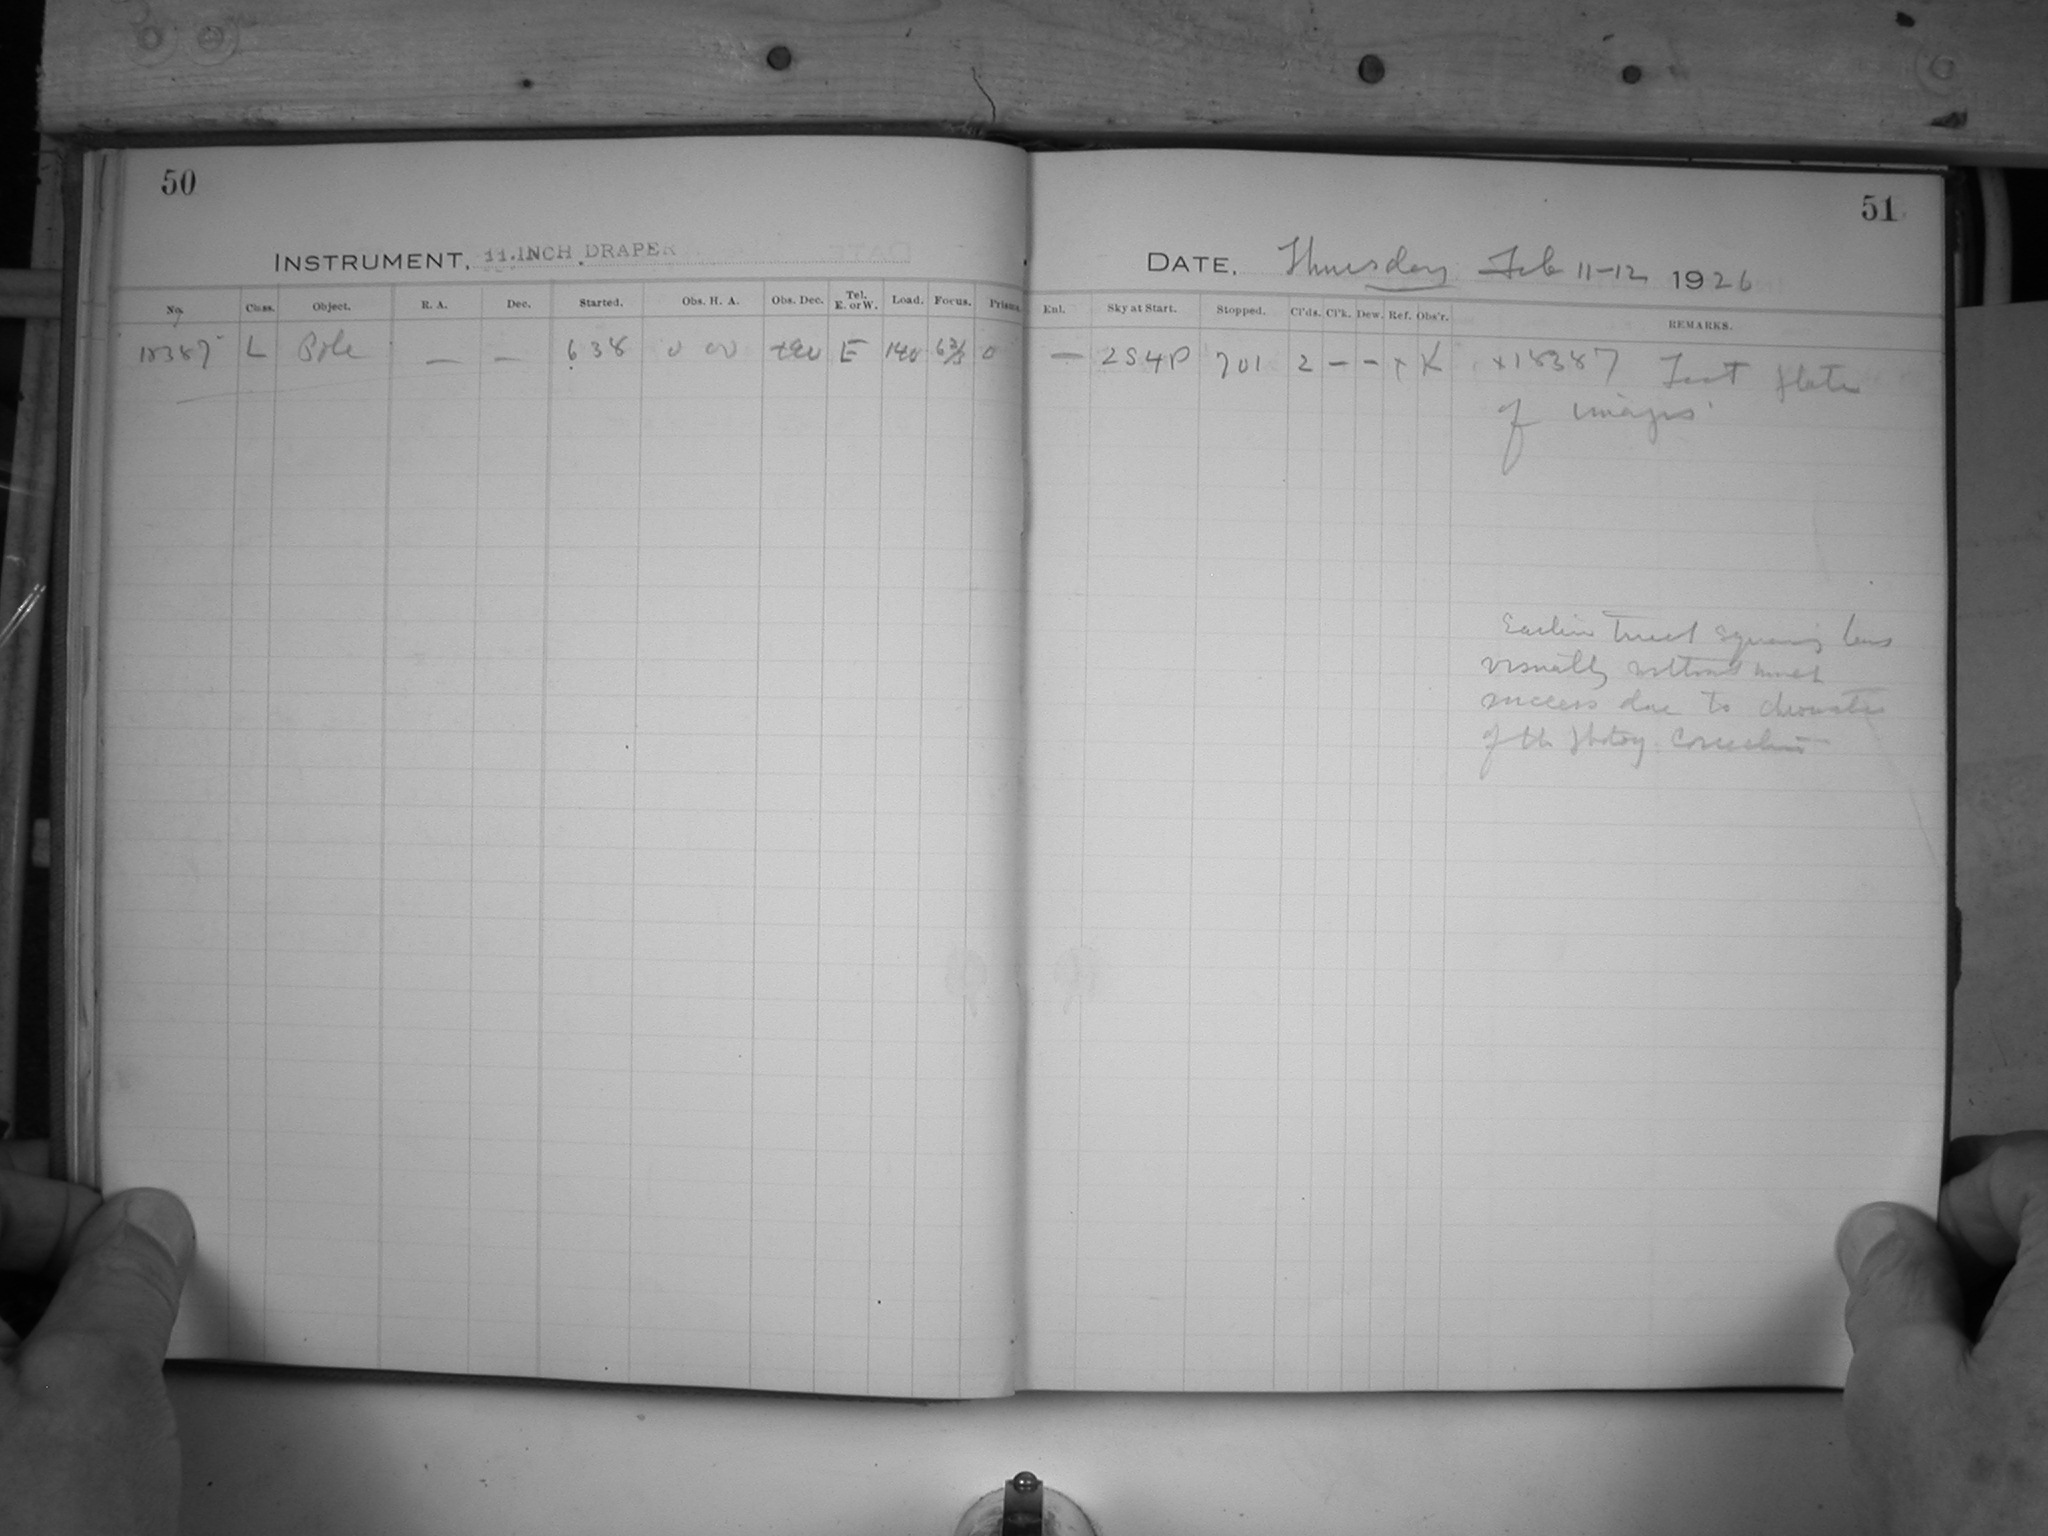 50
INSTRUMENT, 11.INCH DRAPER
No. Class. Object. R. A. Dec. Started. Obs. H. A. Obs. Dec. Tel. E. or W. Load. Focus. Prisms.
18387 L Pole — — 6 38 0 00 +90 E 140 6 2/3 0
51
DATE, Thursday Feb 11-12 1926
Enl. Sky at Start. Stopped. Cl'ds. Cl'k. Dew. Ref. Obs'r. REMARKS.
— 2S4P 701 2 – – + K +18387 Test plate
of images
Earlier tried squaring lens
visually without much
success due to
of the photog. correction